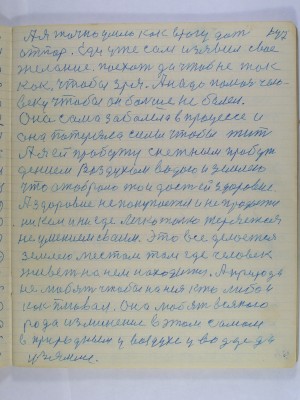 А я точно знаю как врачу дат
отпор. Еду уже сам изъявил свое
желание. поехат да чтоб не так
как, чтобы зря. А надо помоч чело-
веку чтобы он больше не болел.
Она сама заболела в процессе и
она потеряла силы чтобы жит
А я ей пробужу снежным пробуж
дением Воздухом водою и землею
что отобрало то и даст ей здоровие.
А здоровие не покупается и не продается
ни кем и нигде Легко только теряется
не умением своим. Это все делается
землею местом там где человек
живет на нем находится. А природа
не любит чтобы на ней кто любой
как плавал. Она любит всякого
рода изминение в этом самом
в природном у воздухе у воде да
у земле.